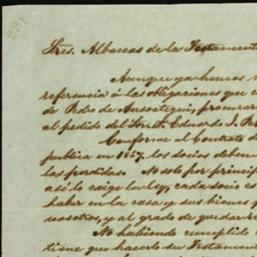 Sres. Albaceas de la Testament
Aunque ya hemos
referencia á las obligaciones que
de Pedro de Ansoategui, procurar
al pedido del Sor. D. Eduardo J.
Conforme al Contrato
publica en 1857, los socios deben
las perdidas. No solo por princip
así lo exige la ley, cada socio es
haber en la casa y sus bienes
nosotros, y al grado de quedar
No habiendo cumplido
tiene que hacerlo su Testament